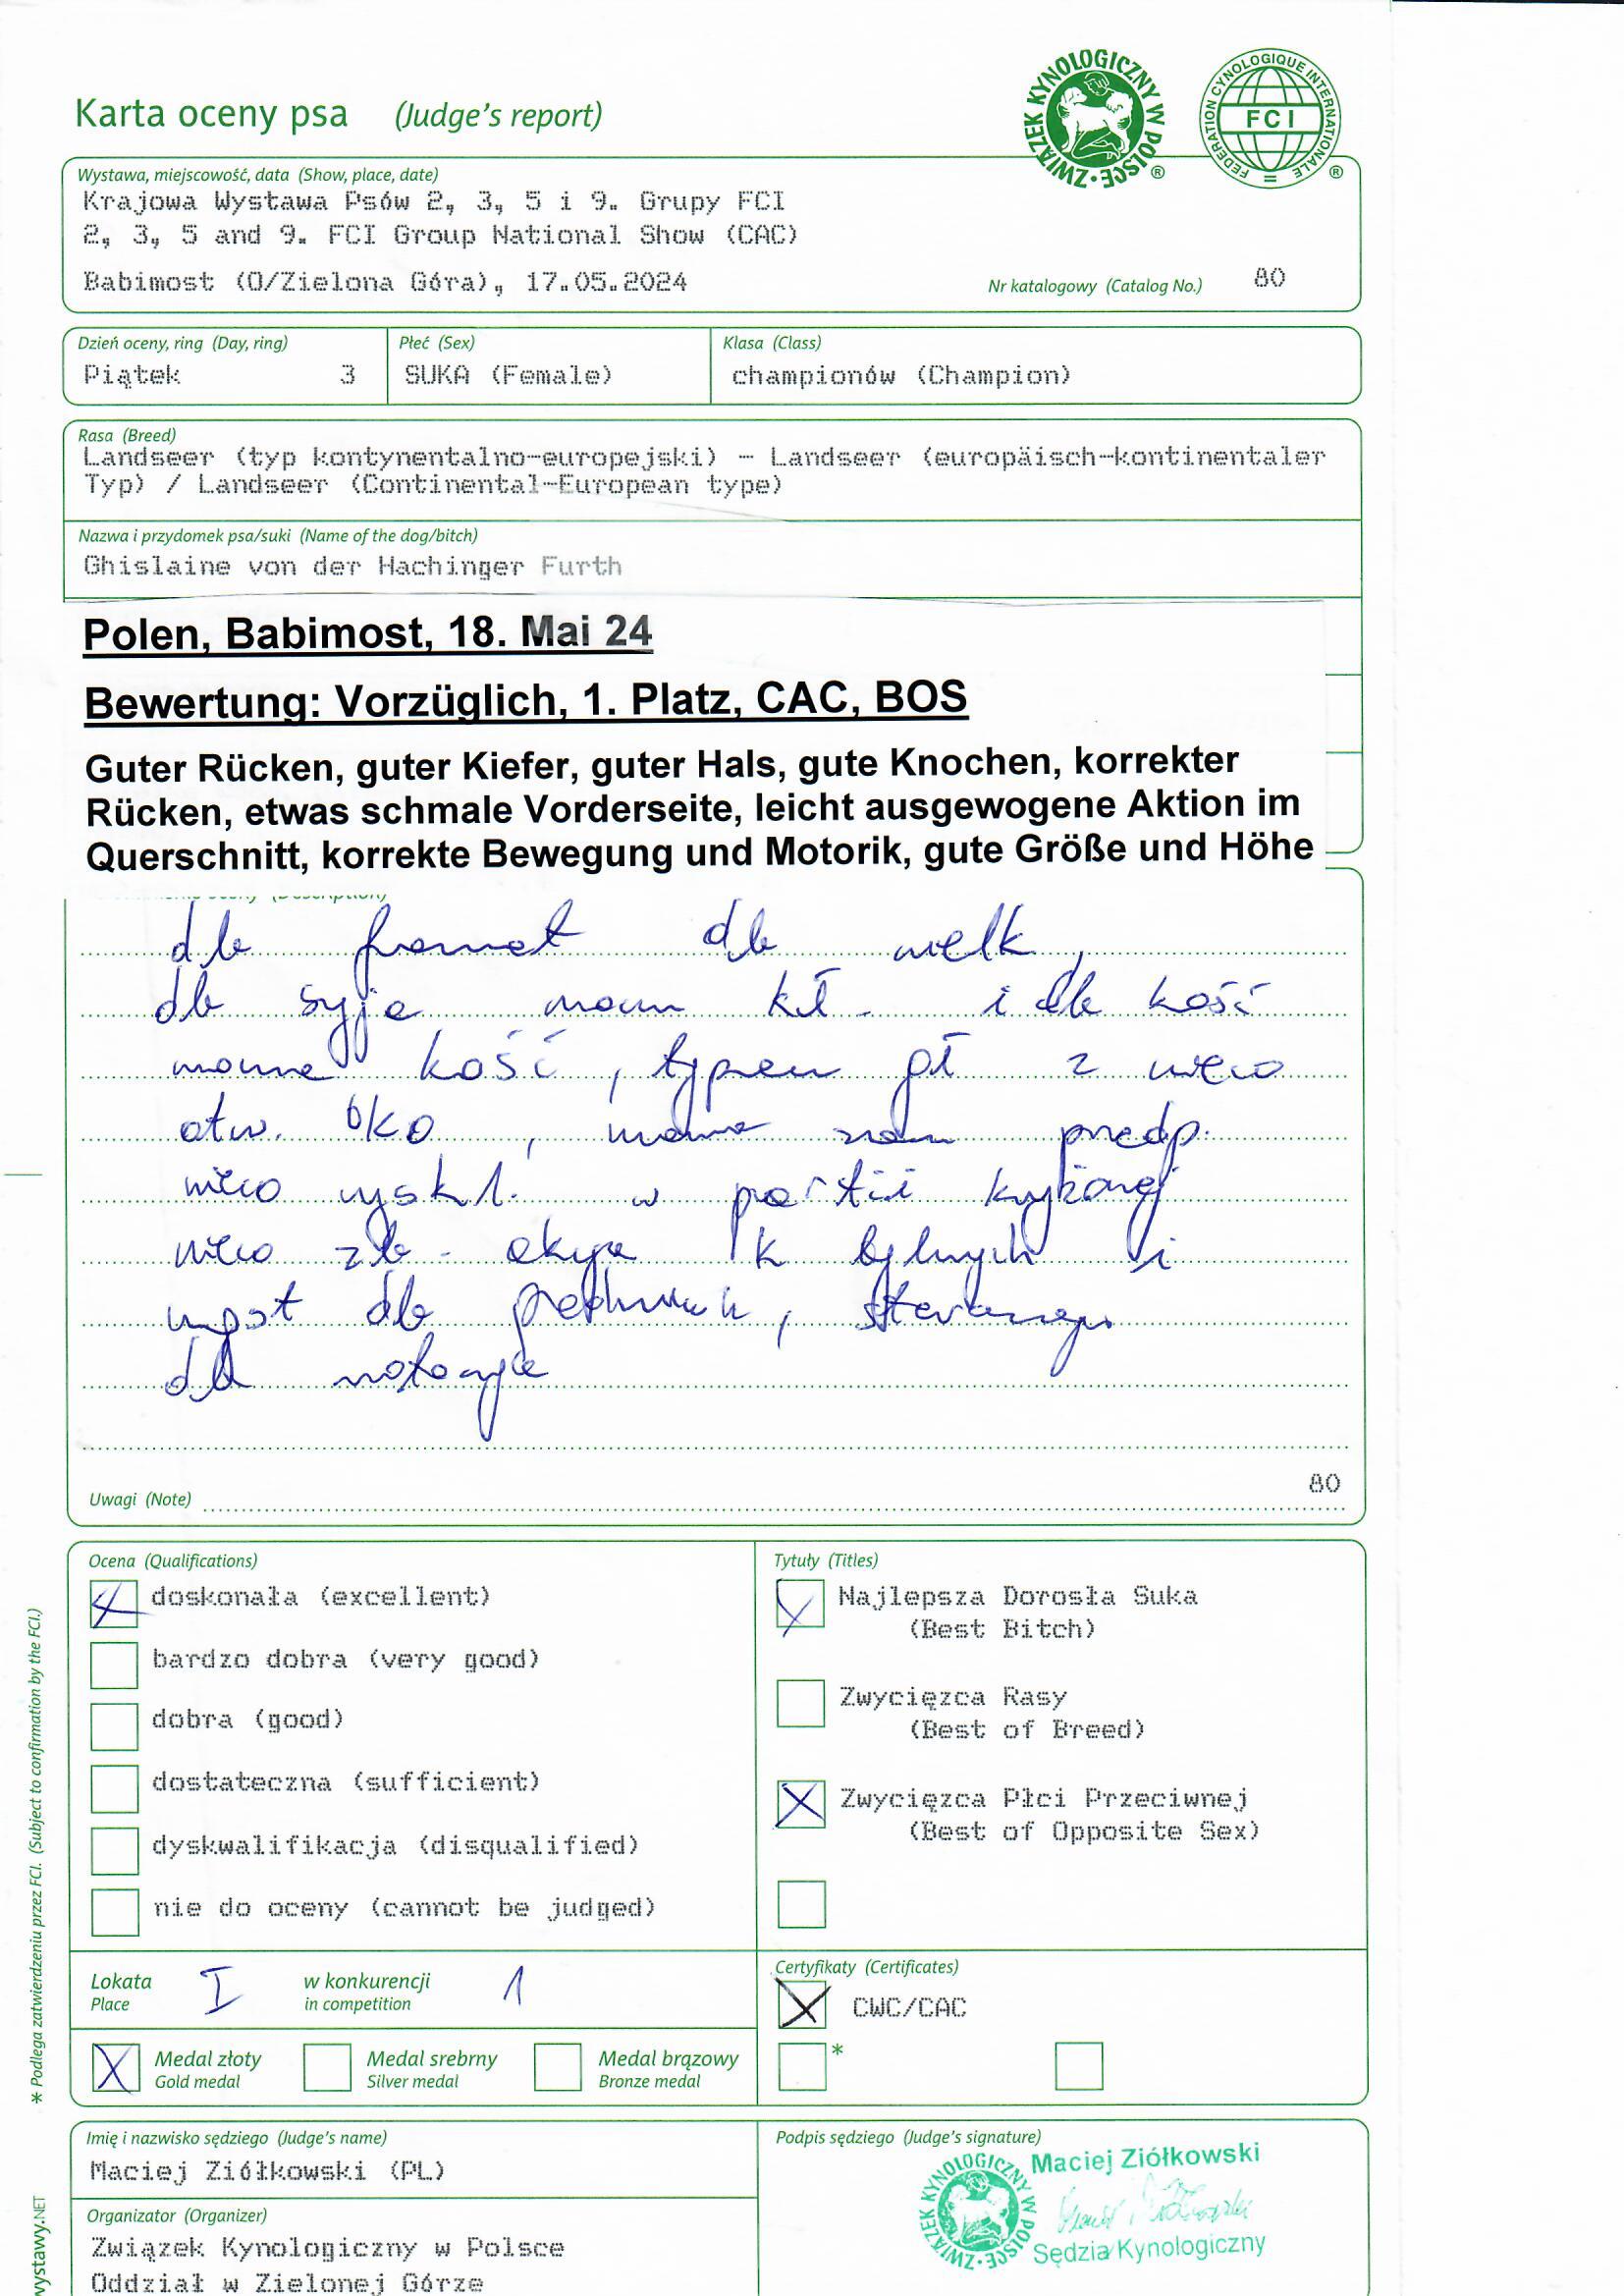 Karta oceny psa (Judge's report)
ZWIĄZEK KYNOLOGICZNY W POLSCE ®
FEDERATION CYNOLOGIQUE INTERNATIONALE FCI ®
Wystawa, miejscowość, data (Show, place, date)
Krajowa Wystawa Psów 2, 3, 5 i 9. Grupy FCI
2, 3, 5 and 9. FCI Group National Show (CAC)
Babimost (O/Zielona Góra), 17.05.2024 Nr katalogowy (Catalog No.) 80
Dzień oceny, ring (Day, ring) Płeć (Sex) Klasa (Class)
Piątek 3 SUKA (Female) championów (Champion)
Rasa (Breed)
Landseer (typ kontynentalno-europejski) - Landseer (europäisch-kontinentaler
Typ) / Landseer (Continental-European type)
Nazwa i przydomek psa/suki (Name of the dog/bitch)
Ghislaine von der Hachinger Furth
Polen, Babimost, 18. Mai 24
Bewertung: Vorzüglich, 1. Platz, CAC, BOS
Guter Rücken, guter Kiefer, guter Hals, gute Knochen, korrekter
Rücken, etwas schmale Vorderseite, leicht ausgewogene Aktion im
Querschnitt, korrekte Bewegung und Motorik, gute Größe und Höhe
db format db wielk,
db szyja kł. i db kość
mocna kość, z nieco
otw. oko,
nieco w partii krzyżowej
nieco i
db
db motoryka
80
Uwagi (Note)
Ocena (Qualifications) Tytuły (Titles)
doskonała (excellent) Najlepsza Dorosła Suka
(Best Bitch)
bardzo dobra (very good)
Zwycięzca Rasy
dobra (good) (Best of Breed)
dostateczna (sufficient) Zwycięzca Płci Przeciwnej
(Best of Opposite Sex)
dyskwalifikacja (disqualified)
nie do oceny (cannot be judged)
Lokata I w konkurencji 1 Certyfikaty (Certificates)
Place in competition CWC/CAC
Medal złoty Medal srebrny Medal brązowy *
Gold medal Silver medal Bronze medal
Imię i nazwisko sędziego (Judge's name) Podpis sędziego (Judge's signature)
Maciej Ziółkowski (PL) Maciej Ziółkowski
Organizator (Organizer) ZWIĄZEK KYNOLOGICZNY W POLSCE
Związek Kynologiczny w Polsce Sędzia Kynologiczny
Oddział w Zielonej Górze
* Podlega zatwierdzeniu przez FCI. (Subject to confirmation by the FCI.)
wystawy.NET